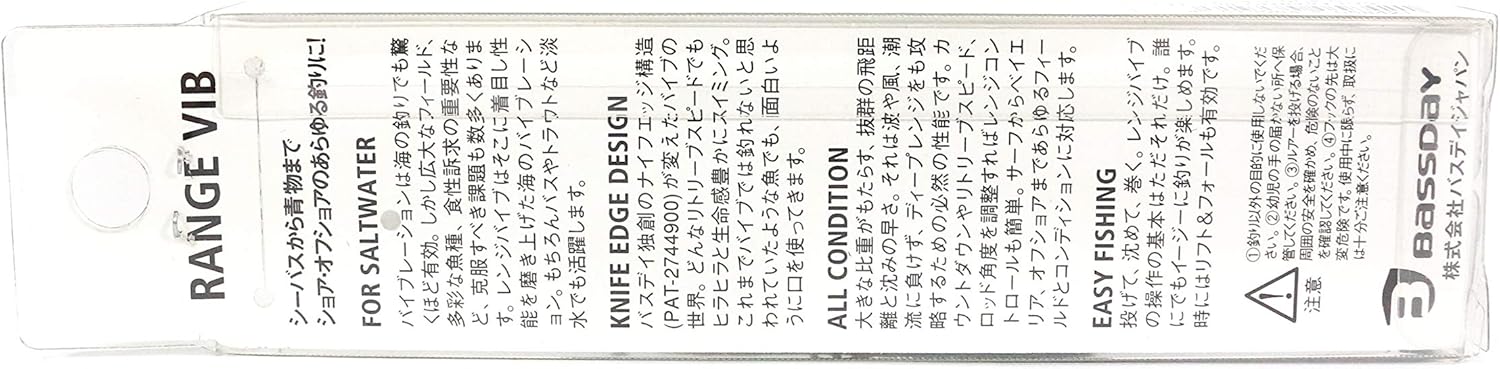 RANGE VIB
シーバスから青物まで
ショア・オフショアのあらゆる釣りに!
FOR SALTWATER
バイブレーションは海の釣りでも驚
くほど有効。しかし広大なフィールド、
多彩な魚種、食性訴求の重要性な
ど、克服すべき課題も数多くありま
す。レンジバイブはそこに着目し性
能を磨き上げた海のバイブレーシ
ョン。もちろんバスやトラウトなど淡
水でも活躍します。
KNIFE EDGE DESIGN
バスデイ独創のナイフエッジ構造
(PAT-2744900)が変えたバイブの
世界。どんなリトリーブスピードでも
ヒラヒラと生命感豊かにスイミング。
これまでバイブでは釣れないと思
われていたような魚でも、面白いよ
うに口を使ってきます。
ALL CONDITION
大きな比重がもたらす、抜群の飛距
離と沈みの早さ。それは波や風、潮
流に負けず、ディープレンジをも攻
略するための必然の性能です。カ
ウントダウンやリトリーブスピード、
ロッド角度を調整すればレンジコン
トロールも簡単。サーフからベイエ
リア、オフショアまであらゆるフィー
ルドとコンディションに対応します。
EASY FISHING
投げて、沈めて、巻く。レンジバイブ
の操作の基本はただそれだけ。誰
にでもイージーに釣りが楽しめます。
時にはリフト&フォールも有効です。
注意
①釣り以外の目的に使用しないでくだ
さい。②幼児の手の届かない所へ保
管してください。③ルアーを投げる場合、
周囲の安全を確かめ、危険のないこと
を確認してください。④フックの先は大
変危険です。使用中に限らず、取扱に
は十分ご注意ください。
BASSDAY
株式会社バスデイジャパン